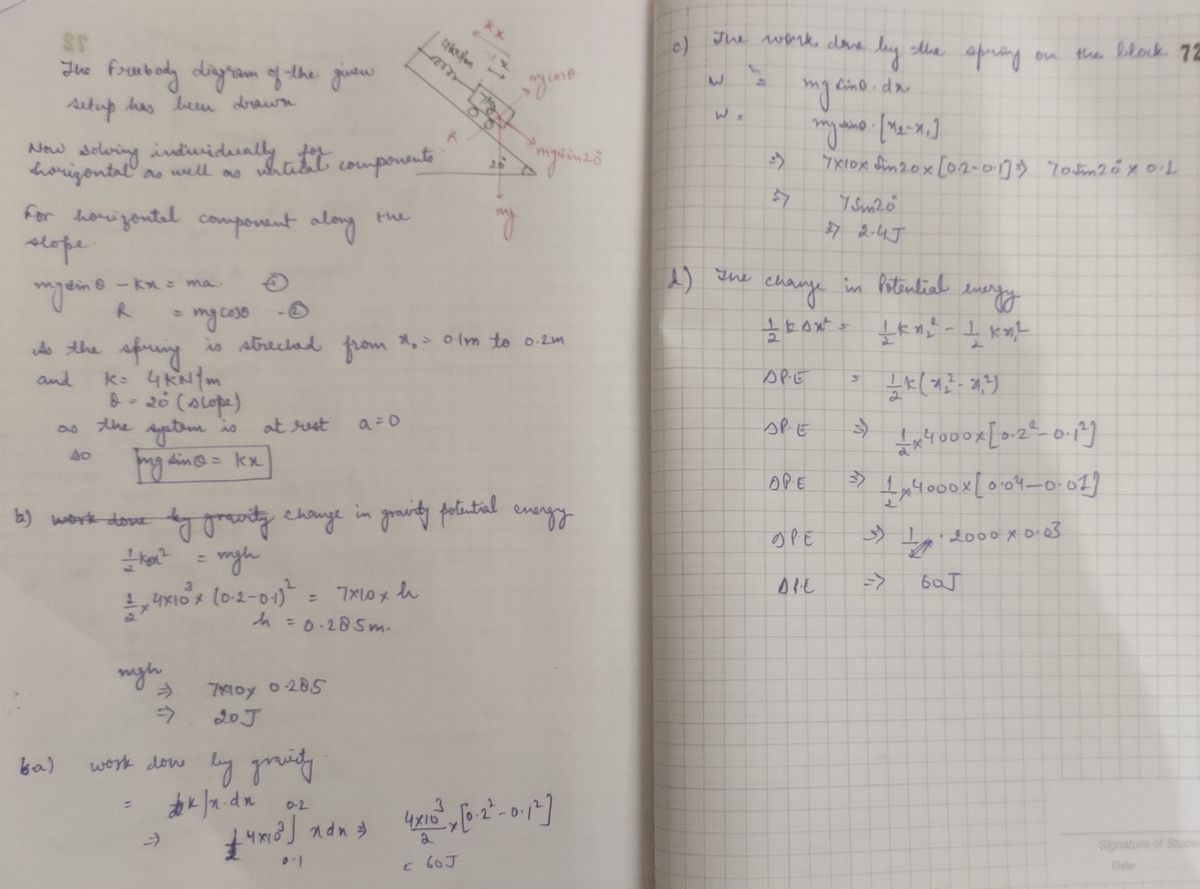 72
The freebody diagram of the given
setup has been drawn
Now solving individually for
horizontal as well as vertical components.
For horizontal component along the
slope.
mg sin θ - kx = ma. ①
R = mg cosθ - ②
As the spring is streched from x₁ = 0.1m to 0.2m
and k = 4KN/m
θ = 20° (slope)
as the system is at rest a=0
so mg sinθ = kx
kx
x
4KN/m
7kg
mgcosθ
mgsin20°
R
20°
mg
b) work done by gravity change in gravity potential energy
½ kx² = mgh
½ × 4×10³ × (0.2-0.1)² = 7×10 × h
h = 0.285m.
mgh
⇒ 7×10× 0.285
⇒ 20J
a) work done by gravity
= k∫x.dx
⇒ 4×10³ ∫ 0.1 0.2 x dx ⇒ 4×10³/2 × [0.2² - 0.1²]
= 60J
c) The work done by the spring on the block 72
W = mg sinθ. dx
W = mg sinθ. [x₂-x₁]
⇒ 7×10× Sin20 × [0.2-0.1] ⇒ 70Sin20° × 0.1
⇒ 7Sin20°
⇒ 2.4J
d) The change in Potential energy
½ k Δx² = ½ k x₂² - ½ k x₁²
ΔP.E = ½ k (x₂² - x₁²)
ΔP.E ⇒ ½ × 4000 × [0.2² - 0.1²]
ΔP.E ⇒ ½ × 4000 × [0.04 - 0.01]
ΔP.E ⇒ 2000 × 0.03
ΔP.E ⇒ 60J
Signature of Stude
Date